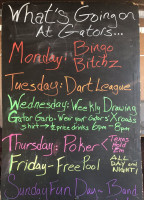 What's Going on
At Gators...
Monday: Bingo
Bitchz
Tuesday: Dart League
Wednesday: Weekly Drawing
Gator Garb - Wear your Gators' X roads
shirt → ½ price drinks 6pm - 8pm
Thursday: Poker Texas Hold Em
Friday - Free Pool ALL DAY and NIGHT!
Sunday Fun Day - Band